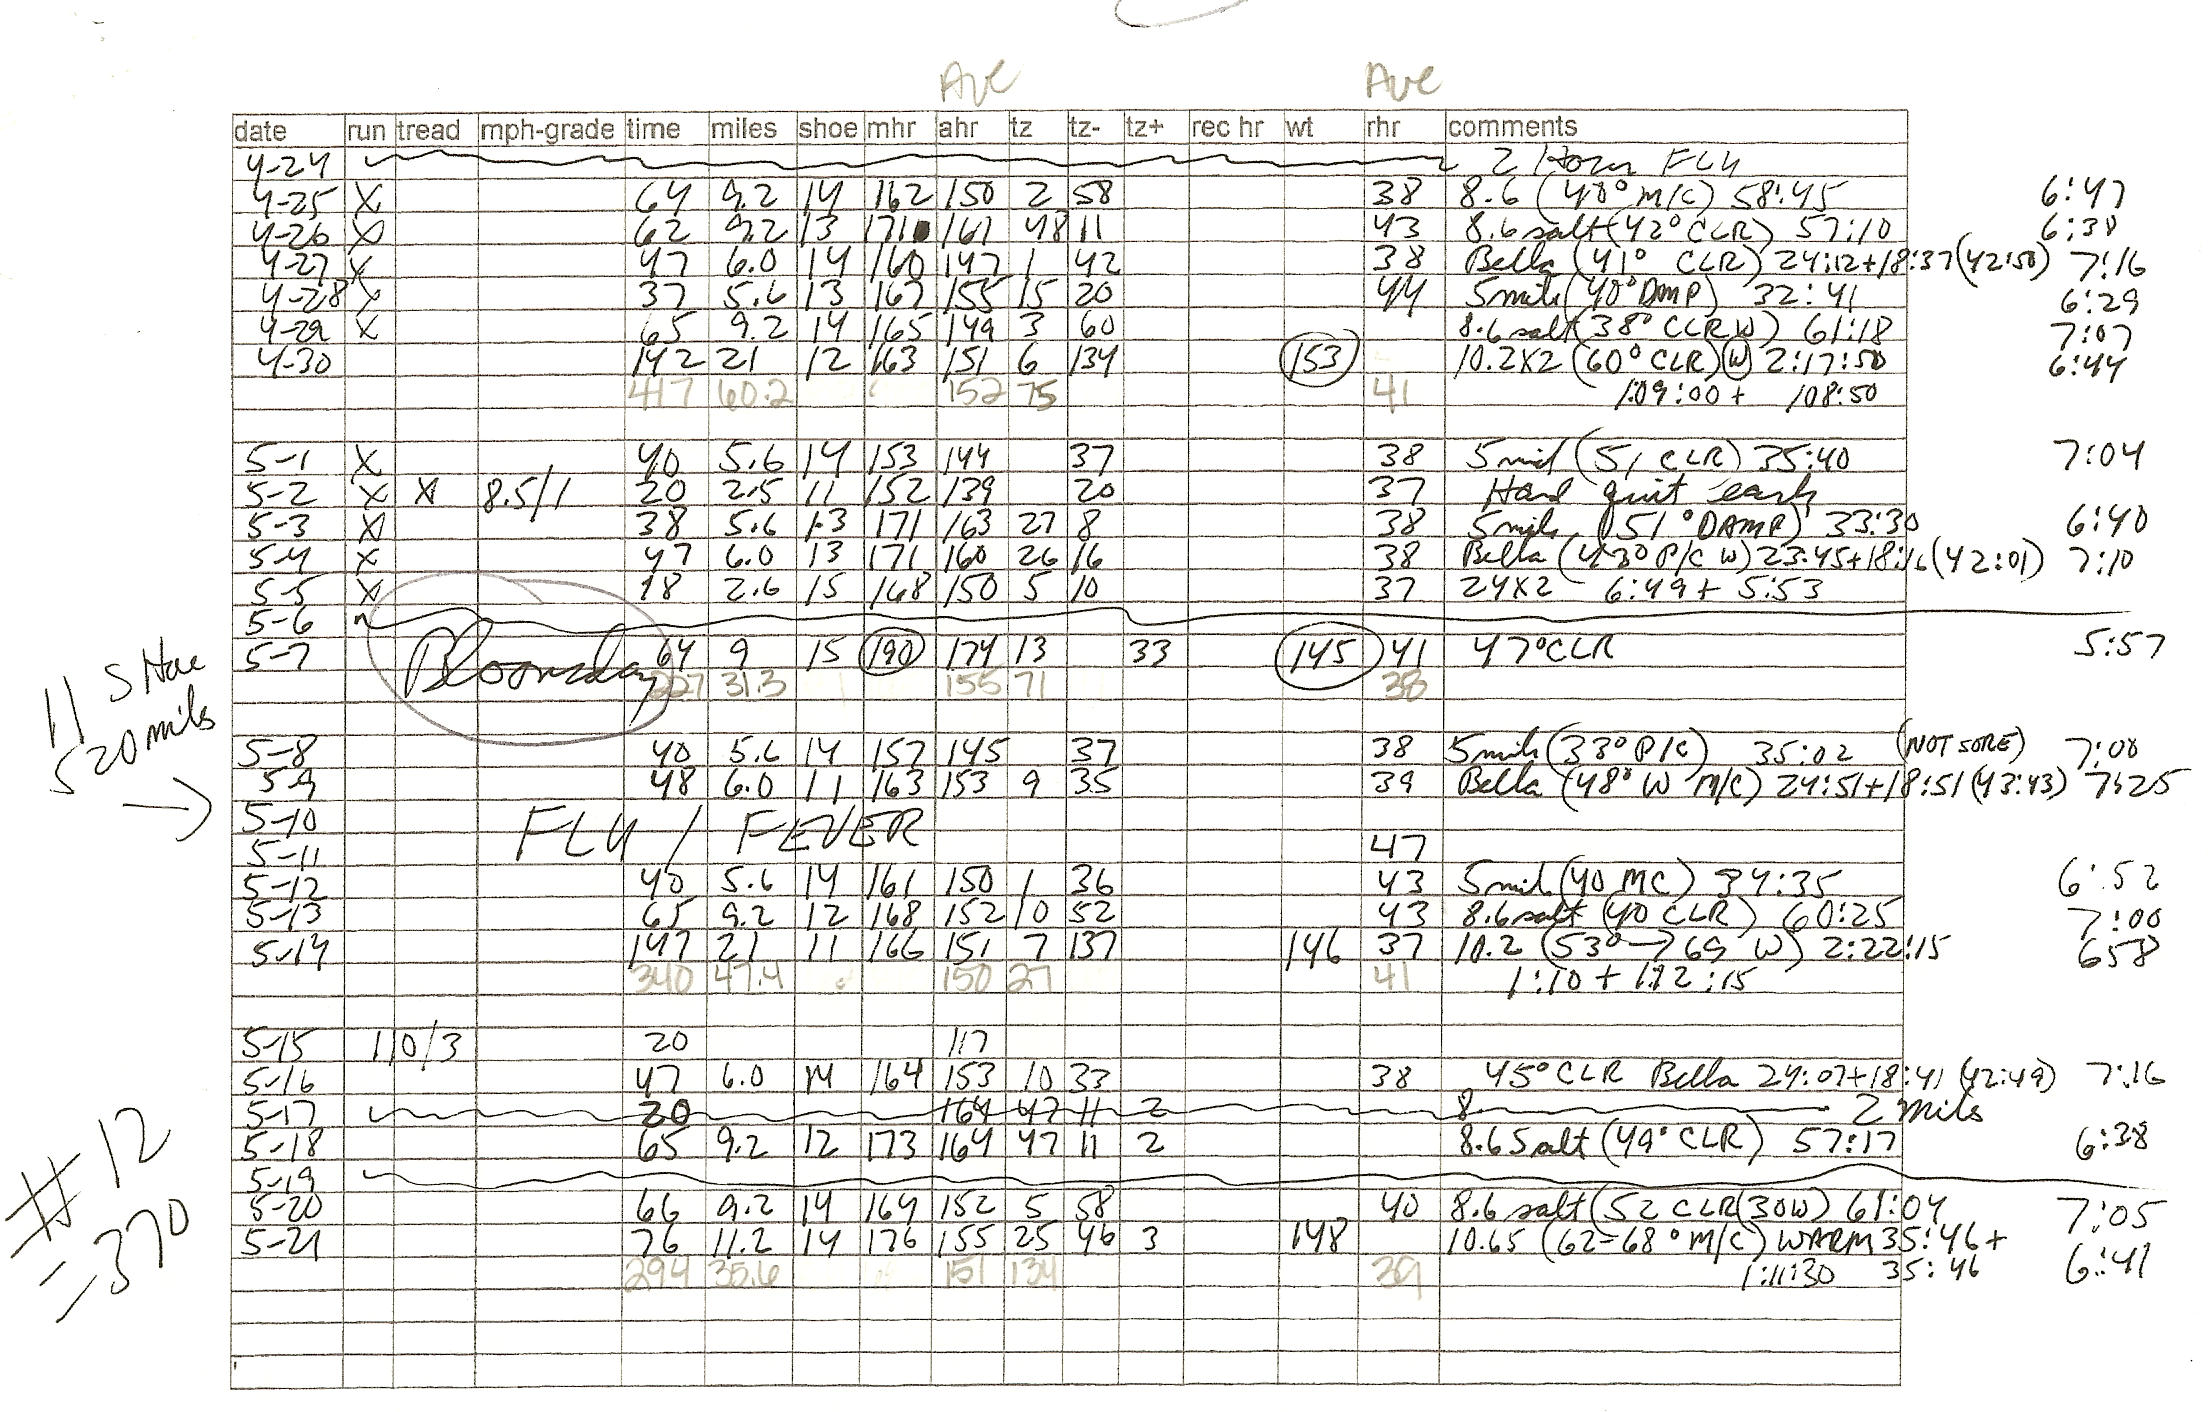 Ave Ave
date run tread mph-grade time miles shoe mhr ahr tz tz- tz+ rec hr wt rhr comments
4-24 2 Hour FLU
4-25 X 64 9.2 14 162 150 2 58 38 8.6 (48° M/C) 58:45 6:47
4-26 X 62 9.2 13 171 161 48 11 43 8.6 salt (42° CLR) 57:10 6:38
4-27 X 47 6.0 14 160 147 1 42 38 Bella (41° CLR) 24:12+18:37 (42:50) 7:16
4-28 X 37 5.6 13 167 155 15 20 44 5 mile (40° DMP) 32:41 6:29
4-29 X 65 9.2 14 165 149 3 60 8.6 salt (38° CLR W) 61:18 7:07
4-30 142 21 12 163 151 6 134 153 10.2X2 (60° CLR) W 2:17:50 6:44
417 60.2 152 75 41 1:09:00 + 108:50
5-1 X 40 5.6 14 153 144 37 38 5 mil (51 CLR) 35:40 7:04
5-2 X X 8.5/1 20 2.5 11 152 139 20 37 Hard quit early
5-3 X 38 5.6 13 171 163 27 8 38 5 mile (51° DAMP) 33:30 6:40
5-4 X 47 6.0 13 171 160 26 16 38 Bella (43° P/C W) 23:45+18:16 (42:01) 7:10
5-5 X 18 2.6 15 168 150 5 10 37 24X2 6:49 + 5:53
5-6
5-7 Bloomsday 64 9 15 190 174 13 33 145 41 47° CLR 5:57
227 31.3 155 71 38
11 Shoe
520 mils
5-8 40 5.6 14 157 145 37 38 5 mile (33° P/C) 35:02 (NOT SORE) 7:00
5-9 48 6.0 11 163 153 9 35 39 Bella (48° W M/C) 24:51+18:51 (43:43) 7:25
5-10 FLU / FEVER
5-11 47
5-12 40 5.6 14 161 150 1 36 43 5 mil (40 MC) 34:35 6:52
5-13 65 9.2 12 168 152 10 52 43 8.6 salt (40 CLR) 60:25 7:00
5-14 147 21 11 166 151 7 137 146 37 10.2 (53° → 69 W) 2:22:15 658
340 47.4 150 27 41 1:10 + 1:12:15
5-15 110/3 20 117
5-16 47 6.0 14 164 153 10 33 38 45° CLR Bella 24:07+18:41 (42:49) 7:16
5-17 20 164 47 11 2 8 2 mils
5-18 65 9.2 12 173 164 47 11 2 8.6 Salt (49° CLR) 57:17 6:38
5-19
5-20 66 9.2 14 164 152 5 58 40 8.6 salt (52 CLR (30W) 61:04 7:05
5-21 76 11.2 14 176 155 25 46 3 148 10.65 (62-68° M/C) WARM 35:46+
294 35.6 151 134 39 1:11:30 35:46 6:41
#12
=370